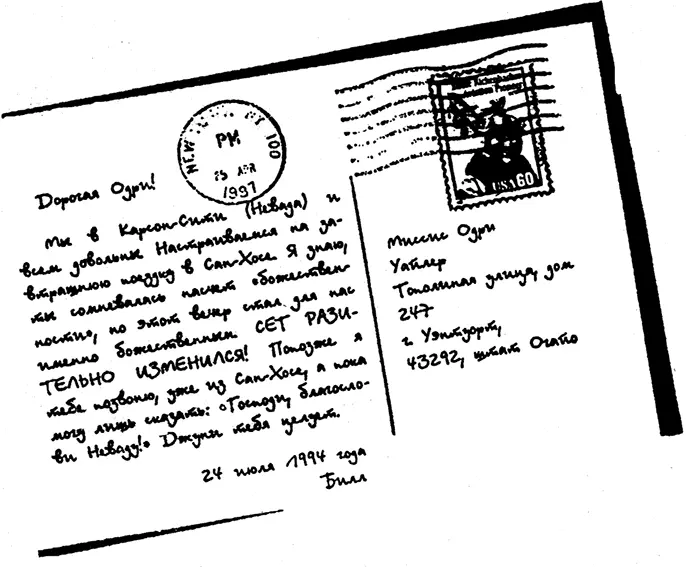 NEW
NY 100
PM
25 APR
1997
USA 60
Дорогая Одри!
Мы в Карсон-Сити (Невада) и
всем довольны. Настраиваемся на за-
втрашнюю поездку в Сан-Хосе. Я знаю,
ты сомневалась насчет «божествен-
ности», но этот вечер стал для нас
именно божественным. СЕТ РАЗИ-
ТЕЛЬНО ИЗМЕНИЛСЯ! Попозже я
тебе позвоню, уже из Сан-Хосе, а пока
могу лишь сказать: «Господи, благосло-
ви Неваду!» Джуни тебя целует.
24 июля 1994 года
Билл
Миссис Одри
Уайлер
Тополиная улица, дом
247
г. Уэнтуорт,
43292, штат Огайо